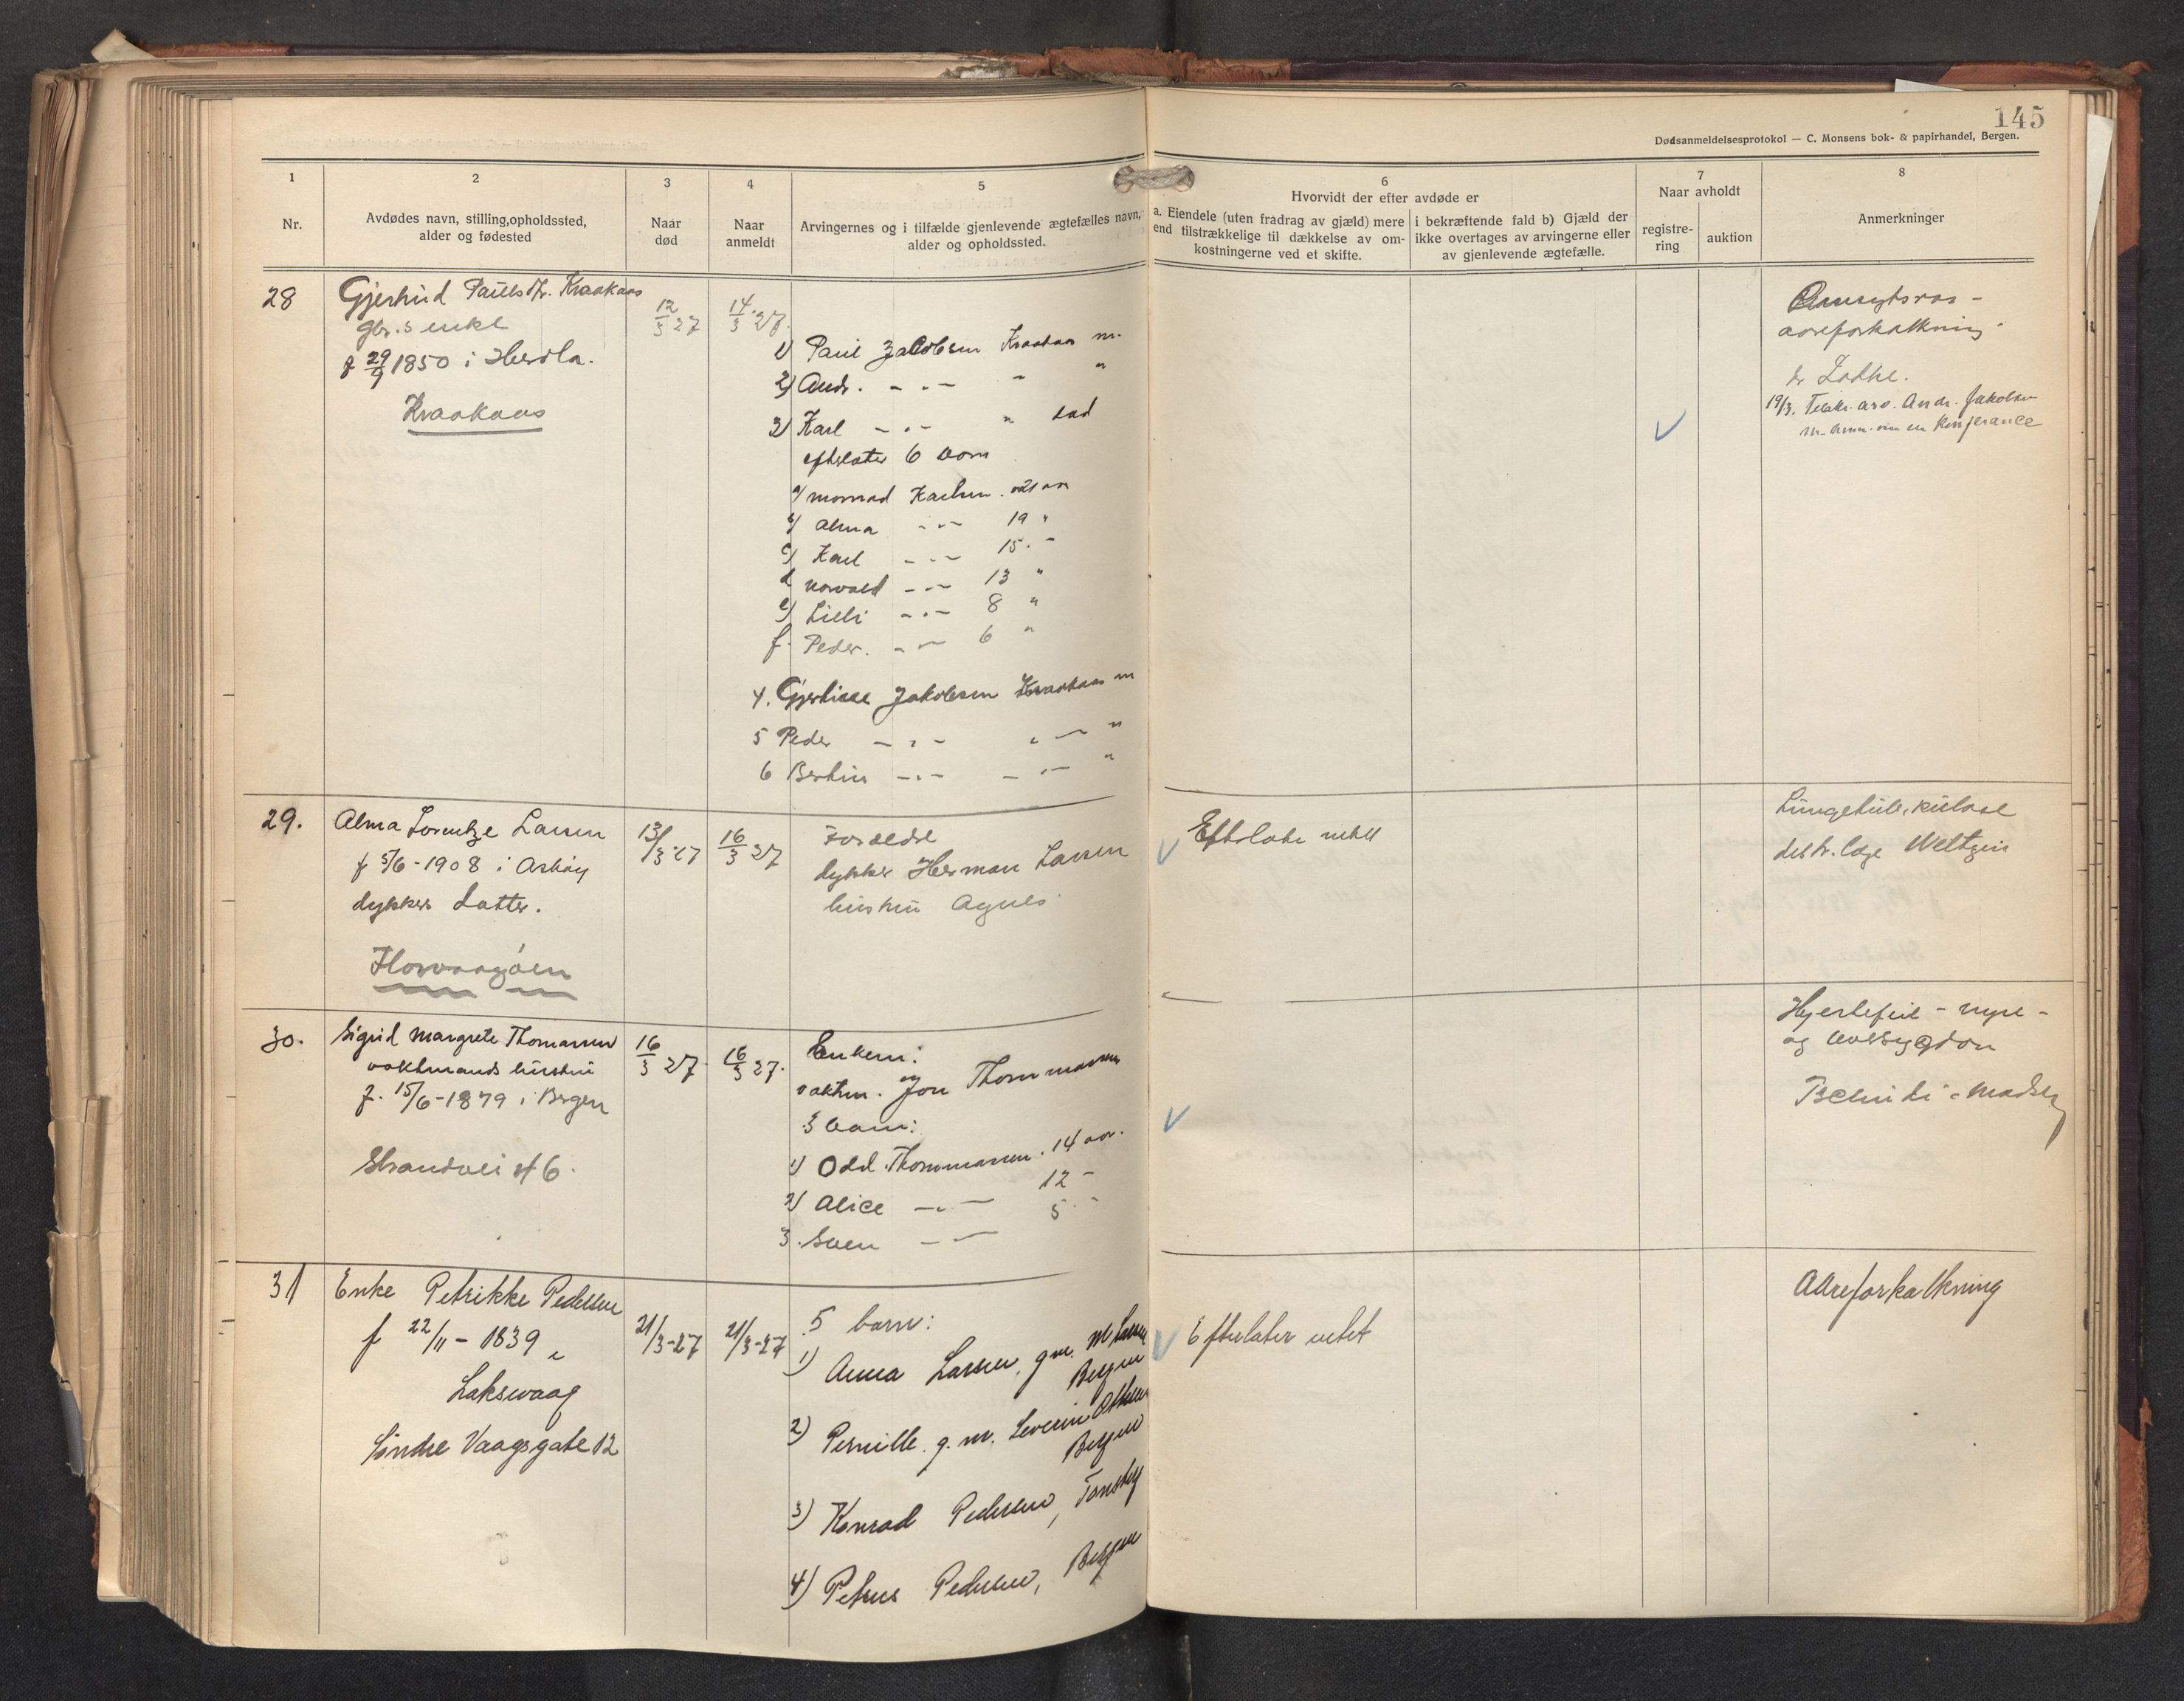 145
Dødsanmeldelsesprotokol — C. Monsens bok- & papirhandel, Bergen.
1
Nr.
2
Avdødes navn, stilling, opholdssted,
alder og fødested
3
Naar
død
4
Naar
anmeldt
5
Arvingernes og i tilfælde gjenlevende ægtefælles navn,
alder og opholdssted.
6
Hvorvidt der efter avdøde er
a. Eiendele (uten fradrag av gjæld) mere
end tilstrækkelige til dækkelse av om-
kostningerne ved et skifte.
i bekræftende fald b) Gjæld der
ikke overtages av arvingerne eller
av gjenlevende ægtefælle.
7
Naar avholdt
registre-
ring
auktion
8
Anmerkninger
28
Gjertrud Paulsdtr. Kraakaas
gbr.s enke
f 29/9 1850 i Herdla.
Kraakaas
12/3 27
14/3 27.
1) Paul Jakobsen Kraakaas m.
2) Andr. - " - - "
3) Karl - " - " død
efterlater 6 barn
a) Monrad Karlsen. 21 aar
b) Alma - " - 19 "
c) Karl - " - 15. -
d norvald - " - 13 "
e) Lilli - " - 8 "
f. Peder. - " - 6 "
4. Jakobsen Kraakaas m
5 Peder - " - " - "
6 Bertin - " - - " - "
aareforkalkning
dr
19/3. arv. Andr. Jakobsen
om en Konferance
29.
Alma Lorentze Larsen
f 5/6-1908 i Askøy
dykkers datter.
13/3 27
16/3 27
Forældre
dykker Herman Larsen
hustru Agnes
Efterlater intet
Lungetuberkulose
distr. læge Weltzin
30.
Sigrid Margrete Thomassen
vaktmands hustru
f. 15/6-1879 i Bergen
Strandvei 46.
16/3 27
16/3 27.
Enkem:
vaktm. Jon Thommassen
3 barn:
1) Odd Thommassen. 14 aar.
2) Alice - " - 12 -
3. Sven - - 5 -
Hjertefeil - nyre -
og
Madsen
31
Enke Petrikke Pedersen
f 22/11 - 1839
Laksevaag
Søndre Vaagsgate 12
21/3-27
21/3-27
5 barn:
1) Anna Larsen, g.m. M. Larsen
Bergen
2) Pernille g. m. Severin
Bergen
3) Konrad Pedersen, Tønsberg
4) Petrus Pedersen, Bergen
Efterlater intet
Aareforkalkning